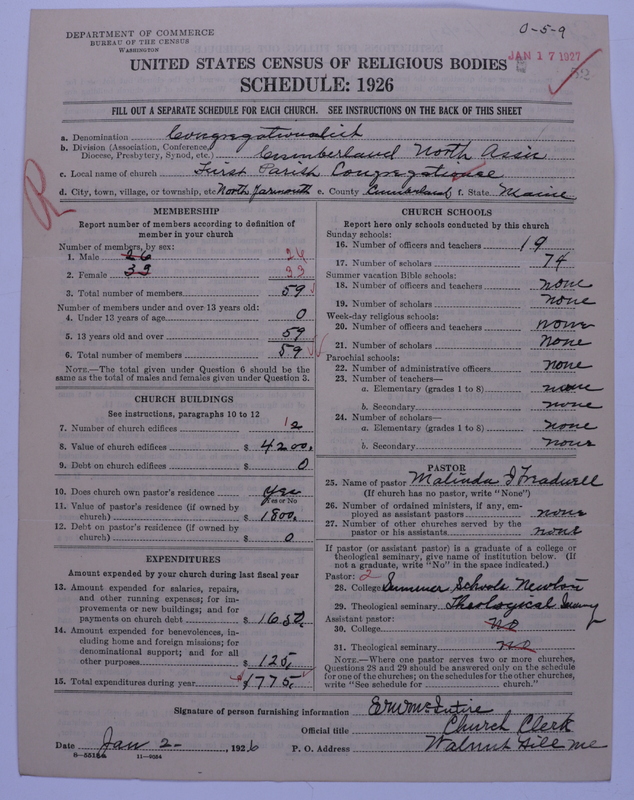 DEPARTMENT OF COMMERCE
BUREAU OF THE CENSUS
WASHINGTON
0-5-9
JAN 17 1927
UNITED STATES CENSUS OF RELIGIOUS BODIES
SCHEDULE: 1926
FILL OUT A SEPARATE SCHEDULE FOR EACH CHURCH. SEE INSTRUCTIONS ON THE BACK OF THIS SHEET
a. Denomination Congregationalist
b. Division (Association, Conference, Diocese, Presbytery, Synod, etc.) Cumberland North Assn
c. Local name of church First Parish Congregational
d. City, town, village, or township, etc North Yarmouth e. County Cumberland f. State Maine
R
MEMBERSHIP
Report number of members according to definition of member in your church
Number of members, by sex:
1. Male 26 26
2. Female 33 33
3. Total number of members 59
Number of members under and over 13 years old:
4. Under 13 years of age 0
5. 13 years old and over 59
6. Total number of members 59
NOTE.—The total given under Question 6 should be the same as the total of males and females given under Question 3.
CHURCH BUILDINGS
See instructions, paragraphs 10 to 12
7. Number of church edifices 1 2
8. Value of church edifices $ 4200.
9. Debt on church edifices $ 0
10. Does church own pastor's residence yes
Yes or No
11. Value of pastor's residence (if owned by church) $ 1800.
12. Debt on pastor's residence (if owned by church) $ 0
EXPENDITURES
Amount expended by your church during last fiscal year
13. Amount expended for salaries, repairs, and other running expenses; for improvements or new buildings; and for payments on church debt $ 1650.
14. Amount expended for benevolences, including home and foreign missions; for denominational support; and for all other purposes $ 125.
15. Total expenditures during year $ 1775.
CHURCH SCHOOLS
Report here only schools conducted by this church
Sunday schools:
16. Number of officers and teachers 19
17. Number of scholars 74
Summer vacation Bible schools:
18. Number of officers and teachers none
19. Number of scholars none
Week-day religious schools:
20. Number of officers and teachers none
21. Number of scholars none
Parochial schools:
22. Number of administrative officers none
23. Number of teachers—
a. Elementary (grades 1 to 8) none
b. Secondary none
24. Number of scholars—
a. Elementary (grades 1 to 8) none
b. Secondary none
PASTOR
25. Name of pastor Malinda
(If church has no pastor, write "None")
26. Number of ordained ministers, if any, employed as assistant pastors none
27. Number of other churches served by the pastor or his assistants none
If pastor (or assistant pastor) is a graduate of a college or theological seminary, give name of institution below. (If not a graduate, write "No" in the space indicated.)
Pastor: 2
28. College Summer Schools Newton
29. Theological seminary Theological
Assistant pastor:
30. College No
31. Theological seminary No
NOTE.—Where one pastor serves two or more churches, Questions 28 and 29 should be answered only on the schedule for one of the churches; on the schedules for the other churches, write "See schedule for church."
Signature of person furnishing information
Official title Church Clerk
Date Jan 2- , 1926 P. O. Address Walnut Hill Me
11-9064